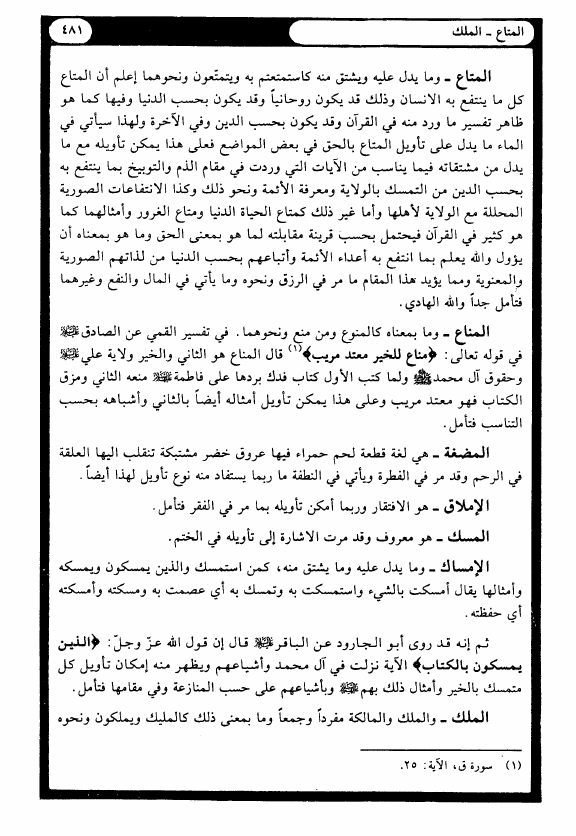 المتاع ـ الملك
٤٨١
المتاع ـ وما يدل عليه ويشتق منه كاستمتعتم به ويتمتّعون ونحوهما إعلم أن المتاع
كل ما ينتفع به الانسان وذلك قد يكون روحانياً وقد يكون بحسب الدنيا وفيها كما هو
ظاهر تفسير ما ورد منه في القرآن وقد يكون بحسب الدين وفي الآخرة ولهذا سيأتي في
الماء ما يدل على تأويل المتاع بالحق في بعض المواضع فعلى هذا يمكن تأويله مع ما
يدل من مشتقاته فيما يناسب من الآيات التي وردت في مقام الذم والتوبيخ بما ينتفع به
بحسب الدين من التمسك بالولاية ومعرفة الأئمة ونحو ذلك وكذا الانتفاعات الصورية
المحللة مع الولاية لأهلها وأما غير ذلك كمتاع الحياة الدنيا ومتاع الغرور وأمثالهما كما
هو كثير في القرآن فيحتمل بحسب قرينة مقابلته لما هو بمعنى الحق وما هو بمعناه أن
يؤول والله يعلم بما انتفع به أعداء الأئمة وأتباعهم بحسب الدنيا من لذاتهم الصورية
والمعنوية ومما يؤيد هذا المقام ما مر في الرزق ونحوه وما يأتي في المال والنفع وغيرهما
فتأمل جداً والله الهادي.
المناع ـ وما بمعناه كالمنوع ومن منع ونحوهما. في تفسير القمي عن الصادق ﷺ
في قوله تعالى: ﴿مناع للخير معتد مريب﴾(١) قال المناع هو الثاني والخير ولاية علي ﷺ
وحقوق آل محمد ﷺ ولما كتب الأول كتاب فدك بردها على فاطمة ﷺ منعه الثاني ومزق
الكتاب فهو معتد مريب وعلى هذا يمكن تأويل أمثاله أيضاً بالثاني وأشباهه بحسب
التناسب فتأمل.
المضغة ـ هي لغة قطعة لحم حمراء فيها عروق خضر مشتبكة تنقلب اليها العلقة
في الرحم وقد مر في الفطرة ويأتي في النطفة ما ربما يستفاد منه نوع تأويل لهذا أيضاً.
الإملاق ـ هو الافتقار وربما أمكن تأويله بما مر في الفقر فتأمل.
المسك ـ هو معروف وقد مرت الاشارة إلى تأويله في الختم.
الإمساك ـ وما يدل عليه وما يشتق منه، كمن استمسك والذين يمسكون ويمسكه
وأمثالها يقال أمسكت بالشيء واستمسكت به وتمسك به أي عصمت به ومسكته وأمسكته
أي حفظته.
ثم إنه قد روى أبو الجارود عن الباقر ﷺ قال إن قول الله عزّ وجلّ: ﴿الذين
يمسكون بالكتاب﴾ الآية نزلت في آل محمد وأشياعهم ويظهر منه إمكان تأويل كل
متمسك بالخير وأمثال ذلك بهم ﷺ وبأشياعهم على حسب المنازعة وفي مقامها فتأمل.
الملك ـ والملك والمالكة مفرداً وجمعاً وما بمعنى ذلك كالمليك ويملكون ونحوه
(١) سورة ق، الآية: ٢٥.